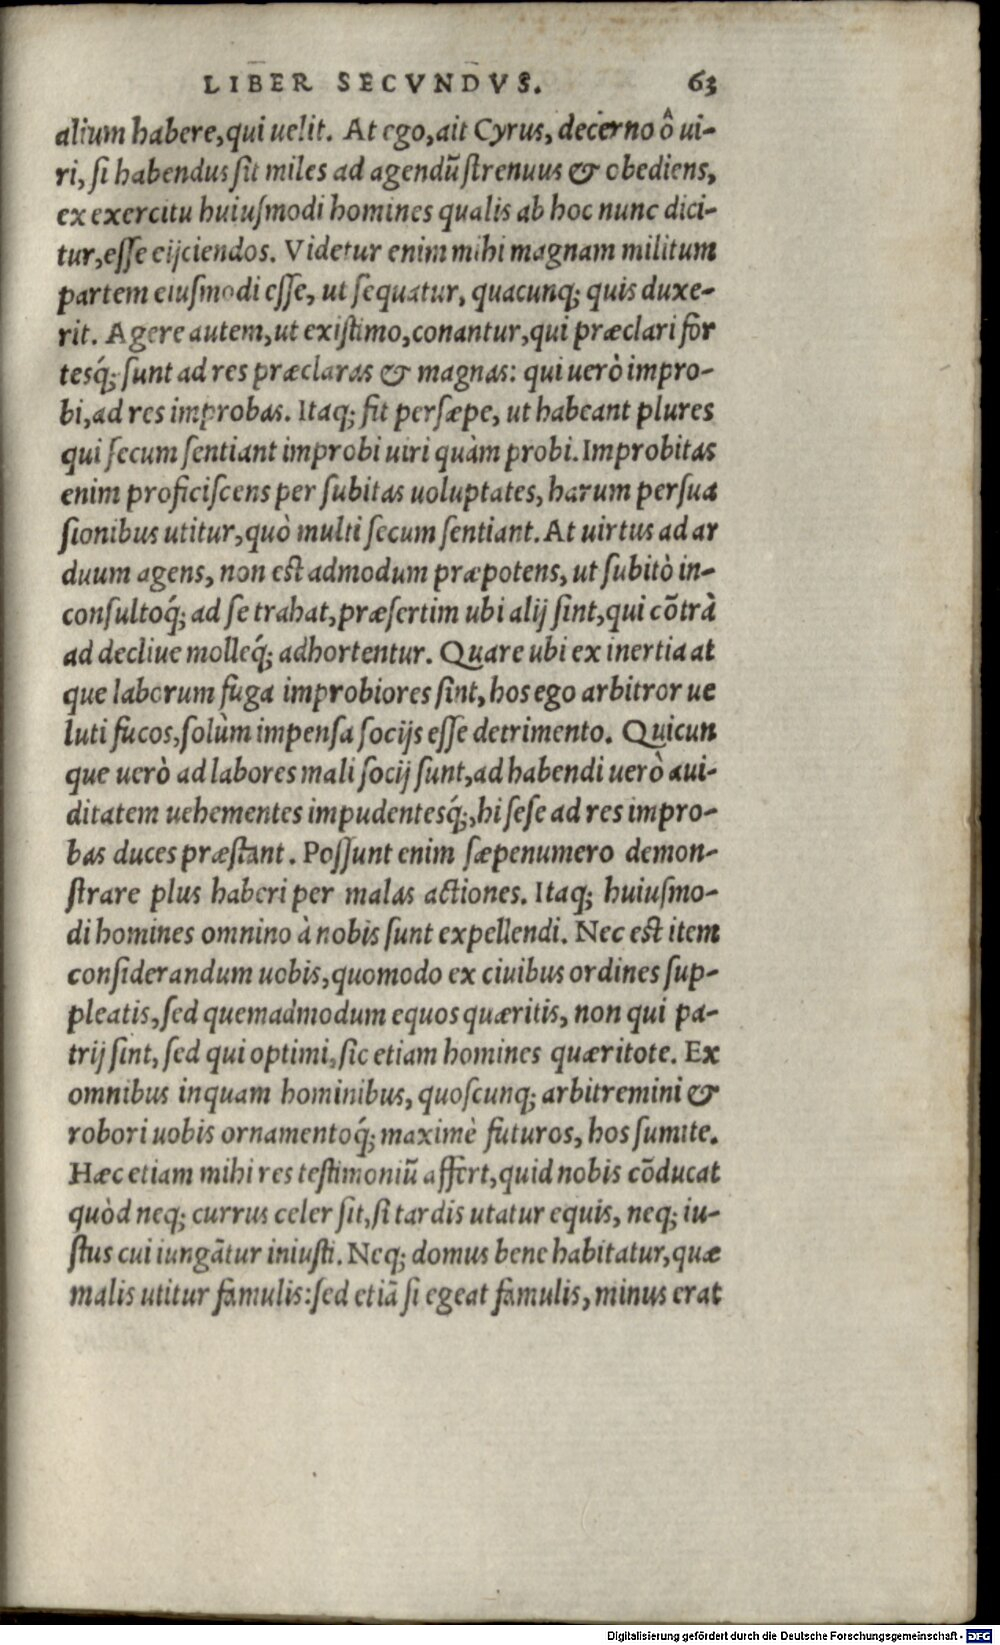 LIBER SECVNDVS. 63
alium habere, qui uelit. At ego, ait Cyrus, decerno ô ui-
ri, si habendus sit miles ad agendũ strenuus & obediens,
ex exercitu huiusmodi homines qualis ab hoc nunc dici-
tur, esse eijciendos. Videtur enim mihi magnam militum
partem eiusmodi esse, ut sequatur, quacunq; quis duxe-
rit. Agere autem, ut existimo, conantur, qui præclari for
tesq́; sunt ad res præclaras & magnas: qui uerò impro-
bi, ad res improbas. Itaq; fit persæpe, ut habeant plures
qui secum sentiant improbi uiri quàm probi. Improbitas
enim proficiscens per subitas uoluptates, harum persua
sionibus utitur, quò multi secum sentiant. At uirtus ad ar
duum agens, non est admodum præpotens, ut subitò in-
consultoq́; ad se trahat, præsertim ubi alij sint, qui cõtrà
ad decliue molleq́; adhortentur. Quare ubi ex inertia at
que laborum fuga improbiores sint, hos ego arbitror ue
luti fucos, solùm impensa socijs esse detrimento. Quicun
que uerò ad labores mali socij sunt, ad habendi uerò aui-
ditatem uehementes impudentesq́;, hi sese ad res impro-
bas duces præstant. Possunt enim sæpenumero demon-
strare plus haberi per malas actiones. Itaq; huiusmo-
di homines omnino à nobis sunt expellendi. Nec est item
considerandum uobis, quomodo ex ciuibus ordines sup-
pleatis, sed quemadmodum equos quæritis, non qui pa-
trij sint, sed qui optimi, sic etiam homines quæritote. Ex
omnibus inquam hominibus, quoscunq; arbitremini &
robori uobis ornamentoq́; maximè futuros, hos sumite.
Hæc etiam mihi res testimoniũ affert, quid nobis cõducat
quòd neq; currus celer sit, si tardis utatur equis, neq; iu-
stus cui iungãtur iniusti. Neq; domus bene habitatur, quæ
malis utitur famulis: sed etiã si egeat famulis, minus erat
Digitalisierung gefördert durch die Deutsche Forschungsgemeinschaft - DFG